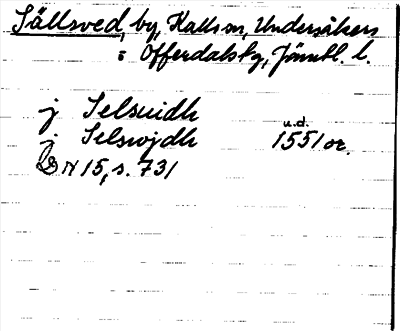 Sällsved, by, Kalls sn, Undersåkers
o. Offerdals tg, Jämtl. l.
j Selsuidh
j. Selswjdh u.d. 1551 or.
DN 15, s. 731